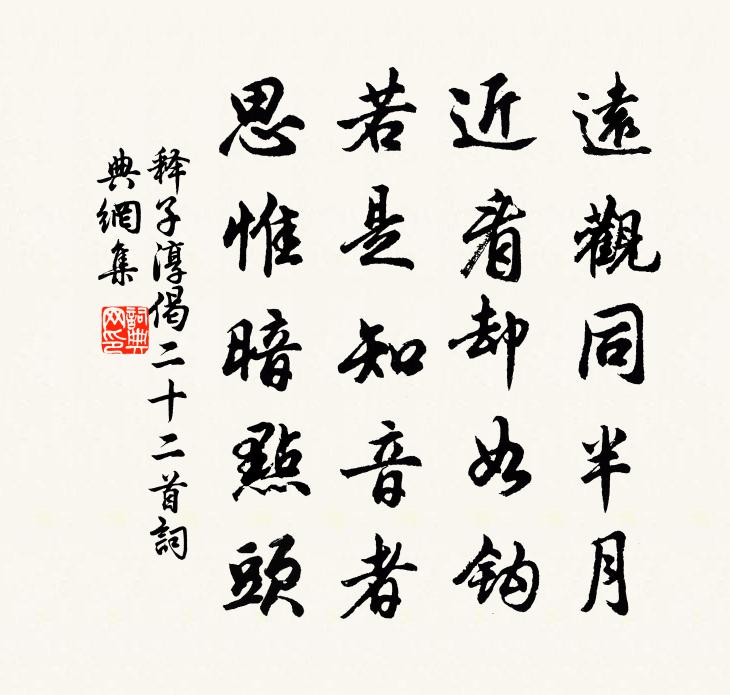 遠觀同半月
近看却如鈎
若是知音者
思惟暗點頭
释子淳偈二十二首詞
典網集
詞典
网印